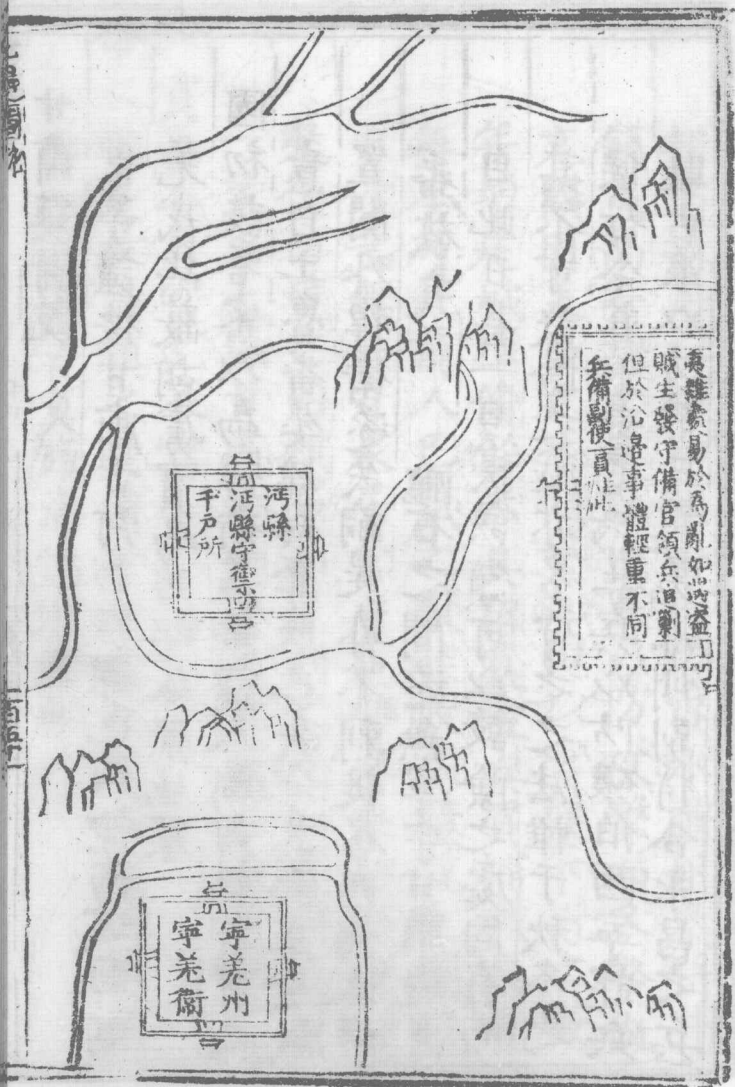 夷雜處易於為亂如遇盜
賊生發守備官領兵追剿
但於沿邊事體輕重不同
兵備副使一員駐此
沔縣
沔縣守禦
千戶所
寧羌州
寧羌衛